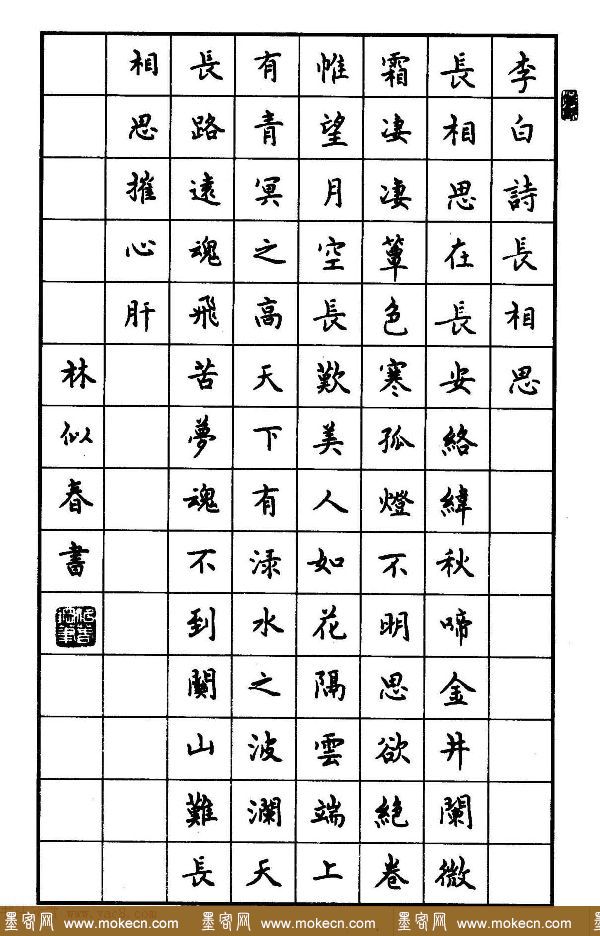 李白詩長相思
長相思在長安絡緯秋啼金井闌微
霜凄凄簟色寒孤燈不明思欲絕卷
帷望月空長歎美人如花隔雲端上
有青冥之高天下有淥水之波瀾天
長路遠魂飛苦夢魂不到關山難長
相思摧心肝
林似春書
墨客网 www.mokecn.com 墨客网 www.mokecn.com 墨客网 www.mokecn.com